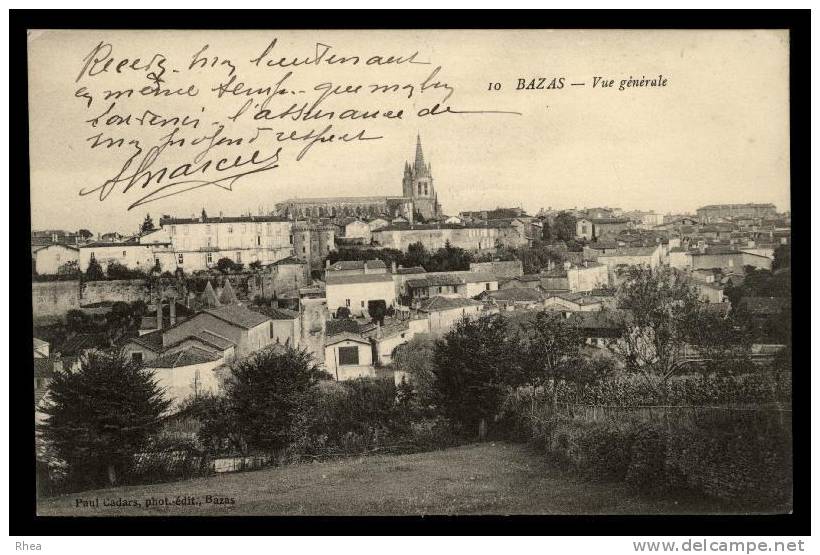 Recevez mon lieutenant
en même temps que mon bon
souvenir l'assurance de
mon profond respect
10 BAZAS — Vue générale
Paul Cadars, phot.-édit., Bazas
Rhea
www.delcampe.net